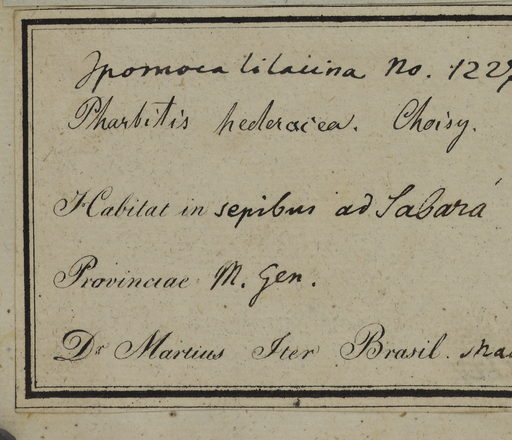 Ipomoea lilacina No. 1227
Pharbitis hederacea. Choisy.
Habitat in sepibus ad Sabará
Provinciae M. Gen.
Dr Martius Iter Brasil.